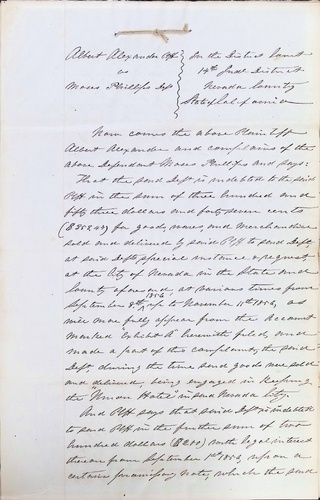 Albert Alexander Plff
vs
Moses Phillips Deft
In the District Court
14th Judl District
Nevada County
State of California
Now comes the above Plaintiff
Albert Alexander and complains of the
above Defendant Moses Phillips and says:
That the said Deft is indebted to the said
Plff in the sum of three hundred and
fifty three dollars and forty seven cents
for goods, wares, and Merchandise
sold and delivered by said Plff to said Deft
at said Defts special instance & request
at the City of Nevada in the State and
County aforesaid at various times from
September 1856 to November 11th 1856, as
will more fully appear from the account
marked Exhibit A herewith filed, and
made a part of this complaint, the said
Deft during the time said goods were sold
and delivered, being engaged in keeping
the "Union Hotel" in said Nevada City.
And Plff says that said Deft is indebted
to said Plff in the further sum of two
hundred dollars ($200) with legal interest
thereon from September 1st 1856, upon a
certain promissory note, which the said